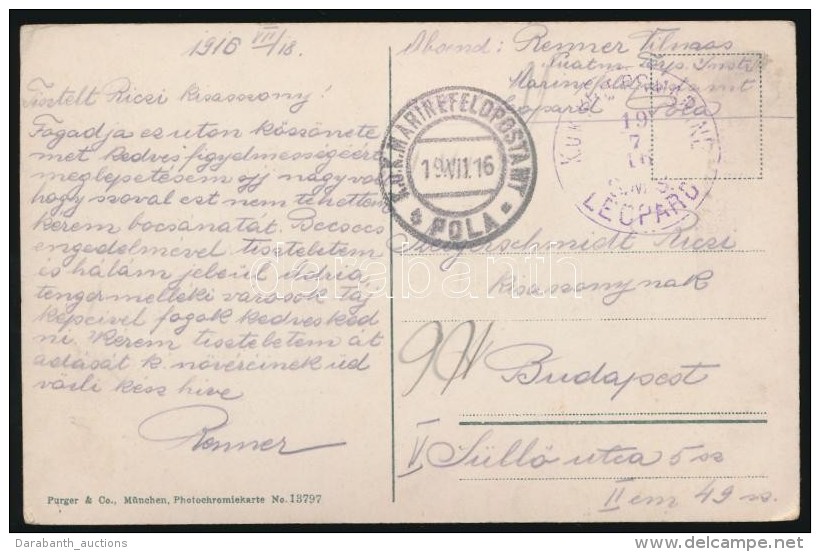 1916 VII/18.
Tisztelt Riczi kisasszony!
Fogadja ez uton köszönete
met kedves figyelmességéért
meglepetésem oly nagy volt
hogy szoval ezt nem tehettem
kérem bocsánatát. Becses
engedelmével tiszteletem
és hálám jeléül Adria,
tengermelléki városok táj
képeivel fogok kedvesked
ni. Kérem tiszteletem át
adását k. nővéreinek üd
vözli kész hive
Renner
Purger & Co., München, Photochromiekarte No. 13797
Absend: Renner Vilmos
Marinefeldpostamt
Pola
K.U.K. MARINEFELDPOSTAMT
19.VII.16
POLA
K.U.K. KRIEGSMARINE
19
7
16
S.M.S.
LEOPARD
Riczi
kisasszonynak
Budapest
V Süllő utca 5 sz
II em 49 sz.
darabanth
Darabanth_auctions
delcampe.net